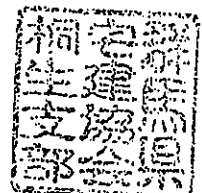 群馬県
宅建協会
桐生支部